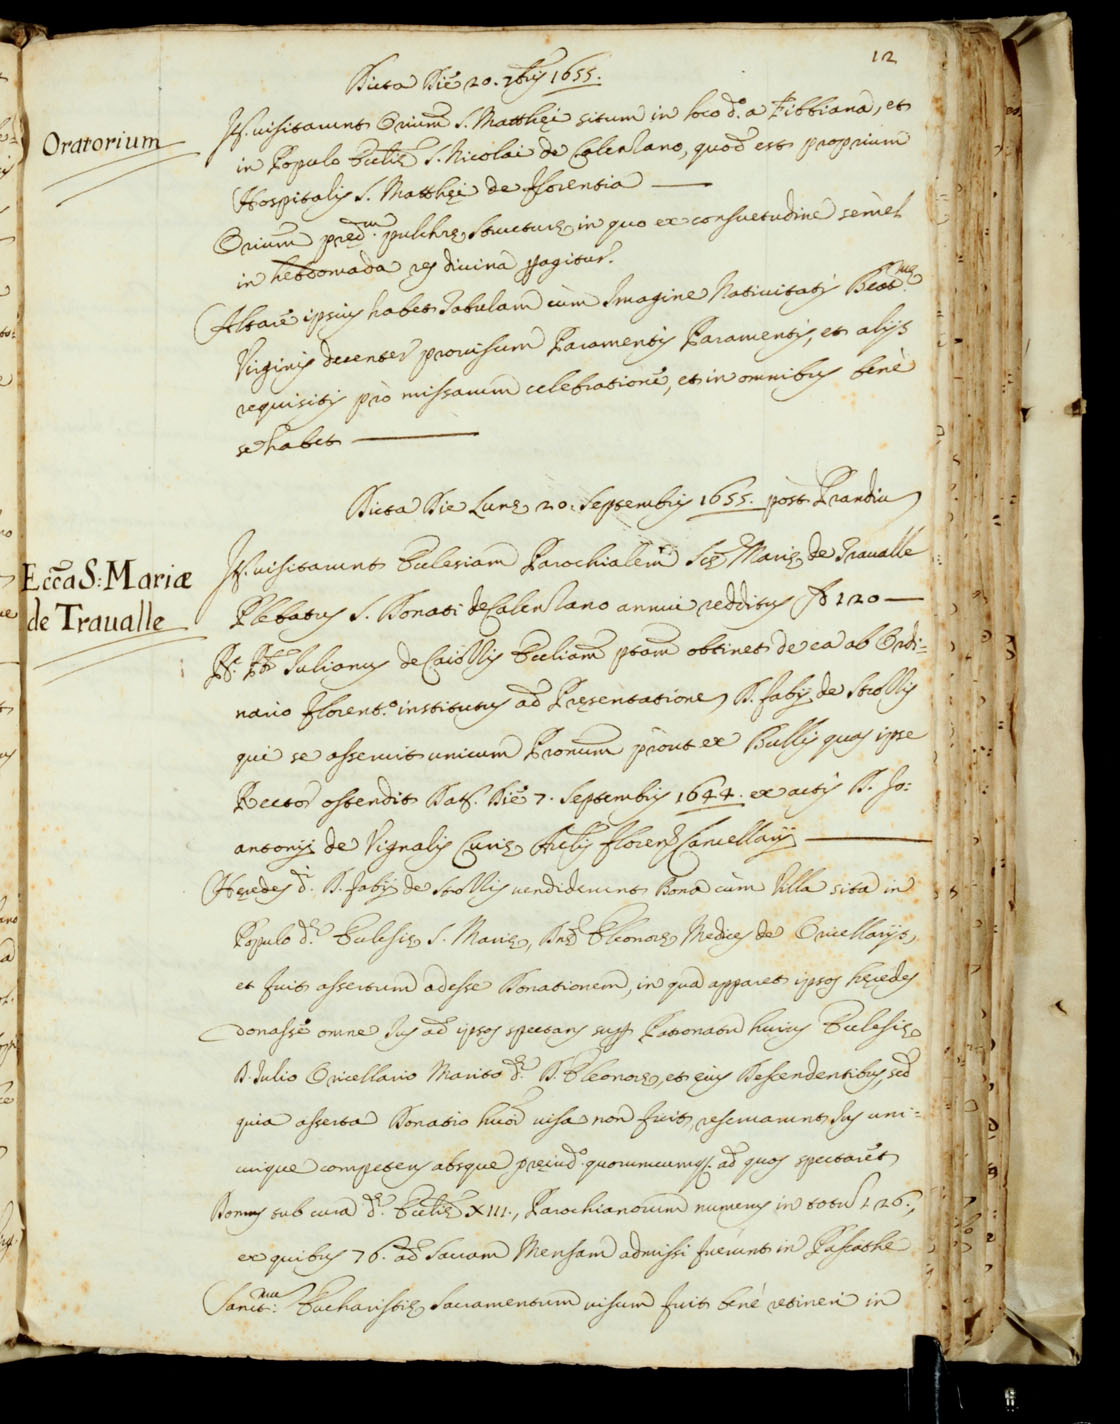 12
Dicta Die 20. 7bris 1655.
Oratorium
visitarunt Orium S. Matthęi situm in loco do. a Fibbiana, et
in Populo Ecclię S. Nicolai de Calenzano, quod est proprium
Hospitalis S. Matthęi de Florentia
Orium pręd.m pulchrę structurę in quo ex consuetudine semel
in hebdomada res divina pagitur.
Altare ipsius habet Tabulam cùm Imagine Nativitatis Beat.mę
Virginis decenter provisum Paramentis Paramentis, et alijs
requisitis prò missarum celebratione, et in omnibus benè
se habet
Dicta Die Lunę 20. Septembris 1655. post Prandiũ
Ecca S: Mariæ
de Traualle
visitarunt Ecclesiam Parochialem Scę Marię de Traualle
Plebatus S. Donati de Calenzano annui redditus 120
Julianus de Caiollis Eccliam ptam obtinet de ea ab Ordi=
nario Florent.o institutus ad Pręsentatione D. Fabij de Strozzis
qui se asseruit unicum Pronum pròut ex Bullis quas ipse
Rector ostendit Dat. Die 7. Septembris 1644. ex actis D. Jo:
antonij de Vignalis Curię Archis Floren Cancellarij
Hęredes d. D. Fabij de Strozzis vendiderunt Bona cùm Villa sita in
Populo dę Ecclesię S. Marię, Dnę Eleonorę Medices de Oricellarijs,
et fuit assertum adesse Donationem, in qua apparet ipsos hęredes
donasse omne Jus ad ipsos spectans sup Patronatu huius Ecclesię
D. Julio Oricellario Marito dę D. Eleonorę, et eius Descendentibus, sed
quia asserta Donatio huoi visa non fuit, reservarunt Jus uni=
cuique competens absque pręiud.o quorumcumq. ad quos spectaret
Domus sub cura dę Ecclię XIII., Parochianorum numerus in totu 126.,
ex quibus 76. ad Sacram Mensam admissi fuerunt in Paschate
Sanct.mę: Eucharistię Sacramentum visum fuit benè retineri in